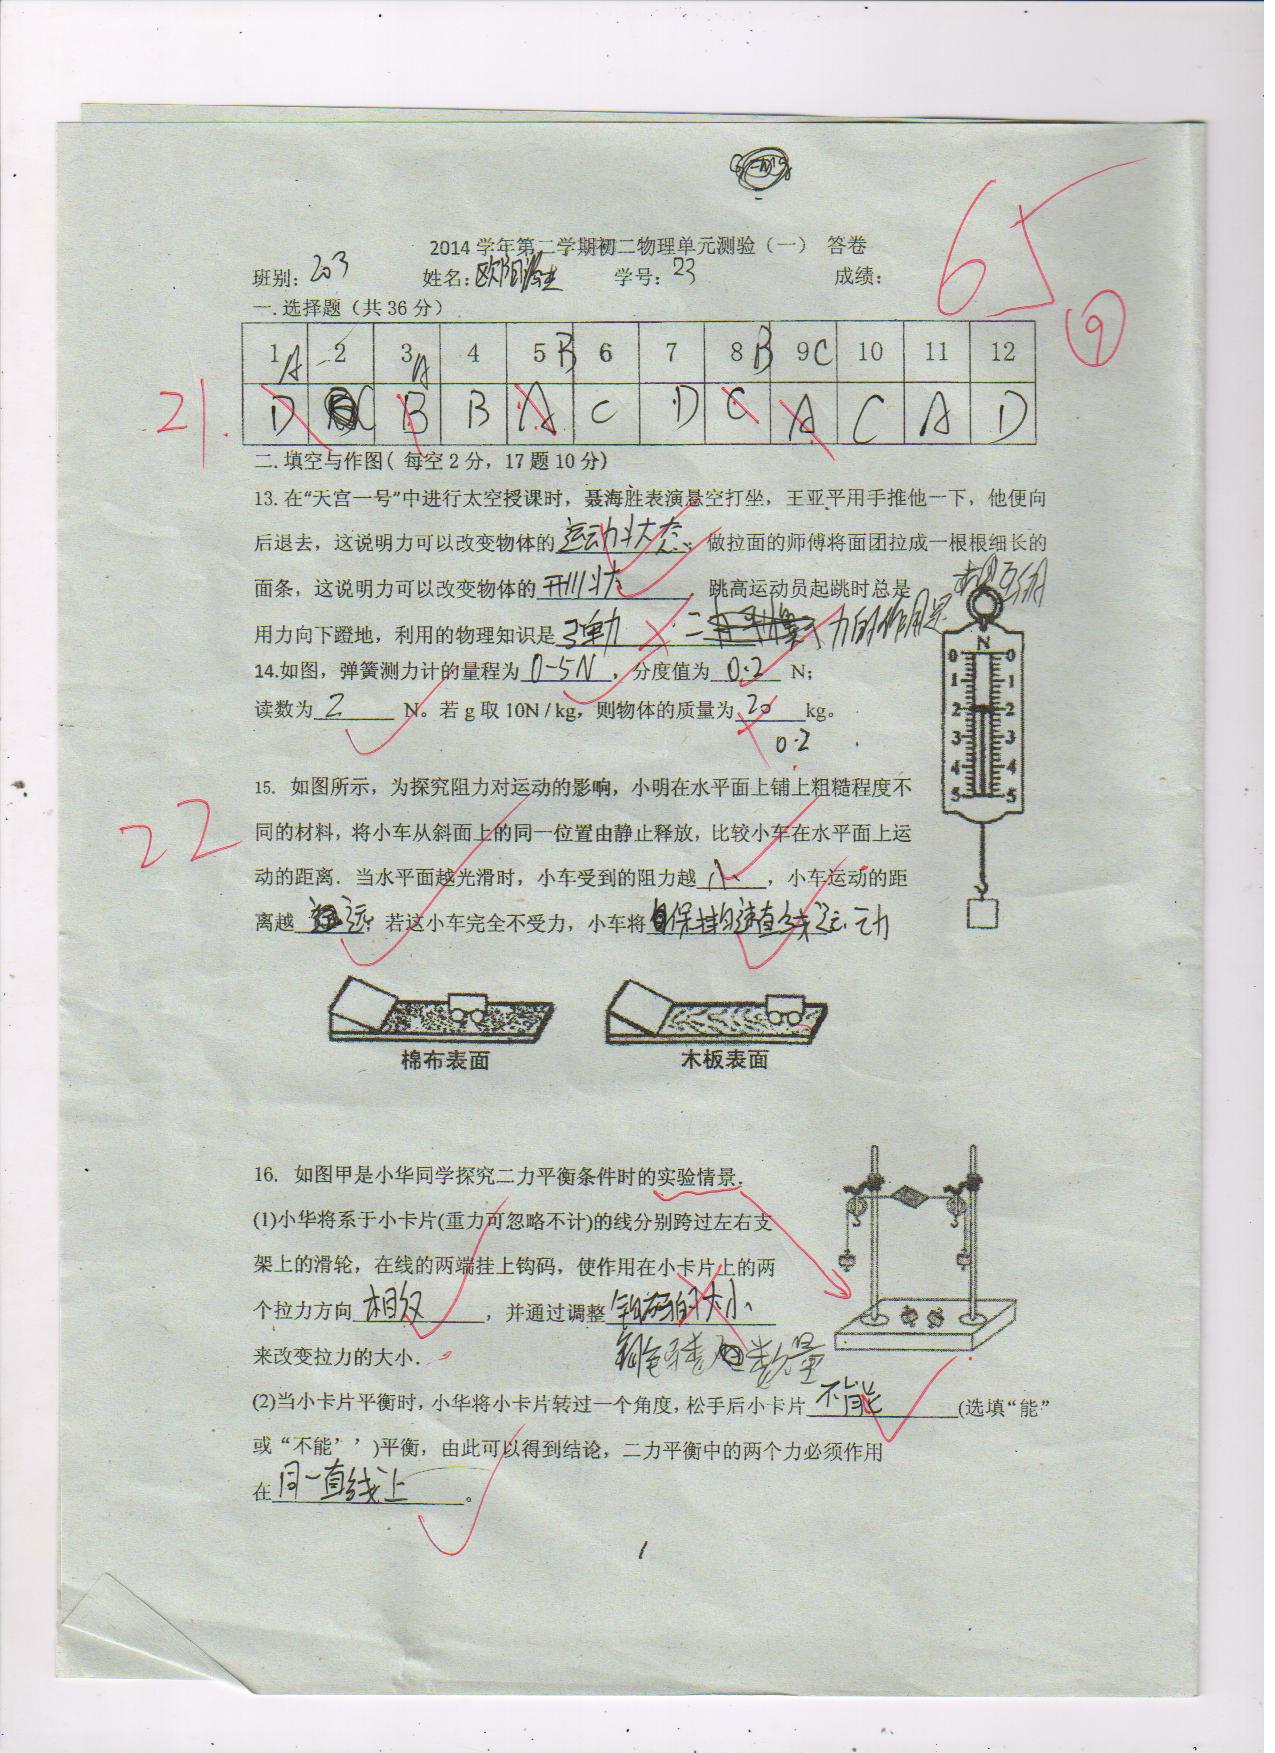 65
2014 学年第二学期初二物理单元测验（一） 答卷
班别: 203 姓名: 欧阳 学号: 23 成绩:
9
一. 选择题（共 36 分）
1 A 2 3 A 4 5 B 6 7 8 B 9 C 10 11 12
21.
D C B B A C D C A C A D
二. 填空与作图( 每空 2 分，17 题 10 分)
13. 在“天宫一号”中进行太空授课时，聂海胜表演悬空打坐，王亚平用手推他一下，他便向
后退去，这说明力可以改变物体的 运动状态 。做拉面的师傅将面团拉成一根根细长的
面条，这说明力可以改变物体的 形状 ．跳高运动员起跳时总是
用力向下蹬地，利用的物理知识是 弹力 力的作用是
相互的
14.如图，弹簧测力计的量程为 0-5N ，分度值为 0.2 N；
读数为 2 N。若 g 取 10N / kg，则物体的质量为 20 kg。
0.2
22
15. 如图所示，为探究阻力对运动的影响，小明在水平面上铺上粗糙程度不
同的材料，将小车从斜面上的同一位置由静止释放，比较小车在水平面上运
动的距离．当水平面越光滑时，小车受到的阻力越 小 ，小车运动的距
离越 远 ；若这小车完全不受力，小车将 保持匀速直线运动
N
0 0
1 1
2 2
3 3
4 4
5 5
棉布表面 木板表面
16. 如图甲是小华同学探究二力平衡条件时的实验情景．
(1)小华将系于小卡片(重力可忽略不计)的线分别跨过左右支
架上的滑轮，在线的两端挂上钩码，使作用在小卡片上的两
个拉力方向 相反 ，并通过调整 钩码的大小
来改变拉力的大小． 数量
(2)当小卡片平衡时，小华将小卡片转过一个角度，松手后小卡片 不能 (选填“能”
或“不能’’)平衡，由此可以得到结论，二力平衡中的两个力必须作用
在 同一直线上 。
1